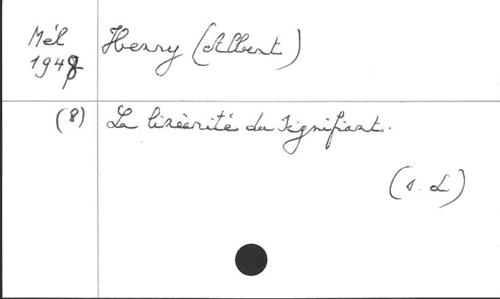 Mél Henry (Albert)
194
(8) La linéarité du signifiant.
(s. L)